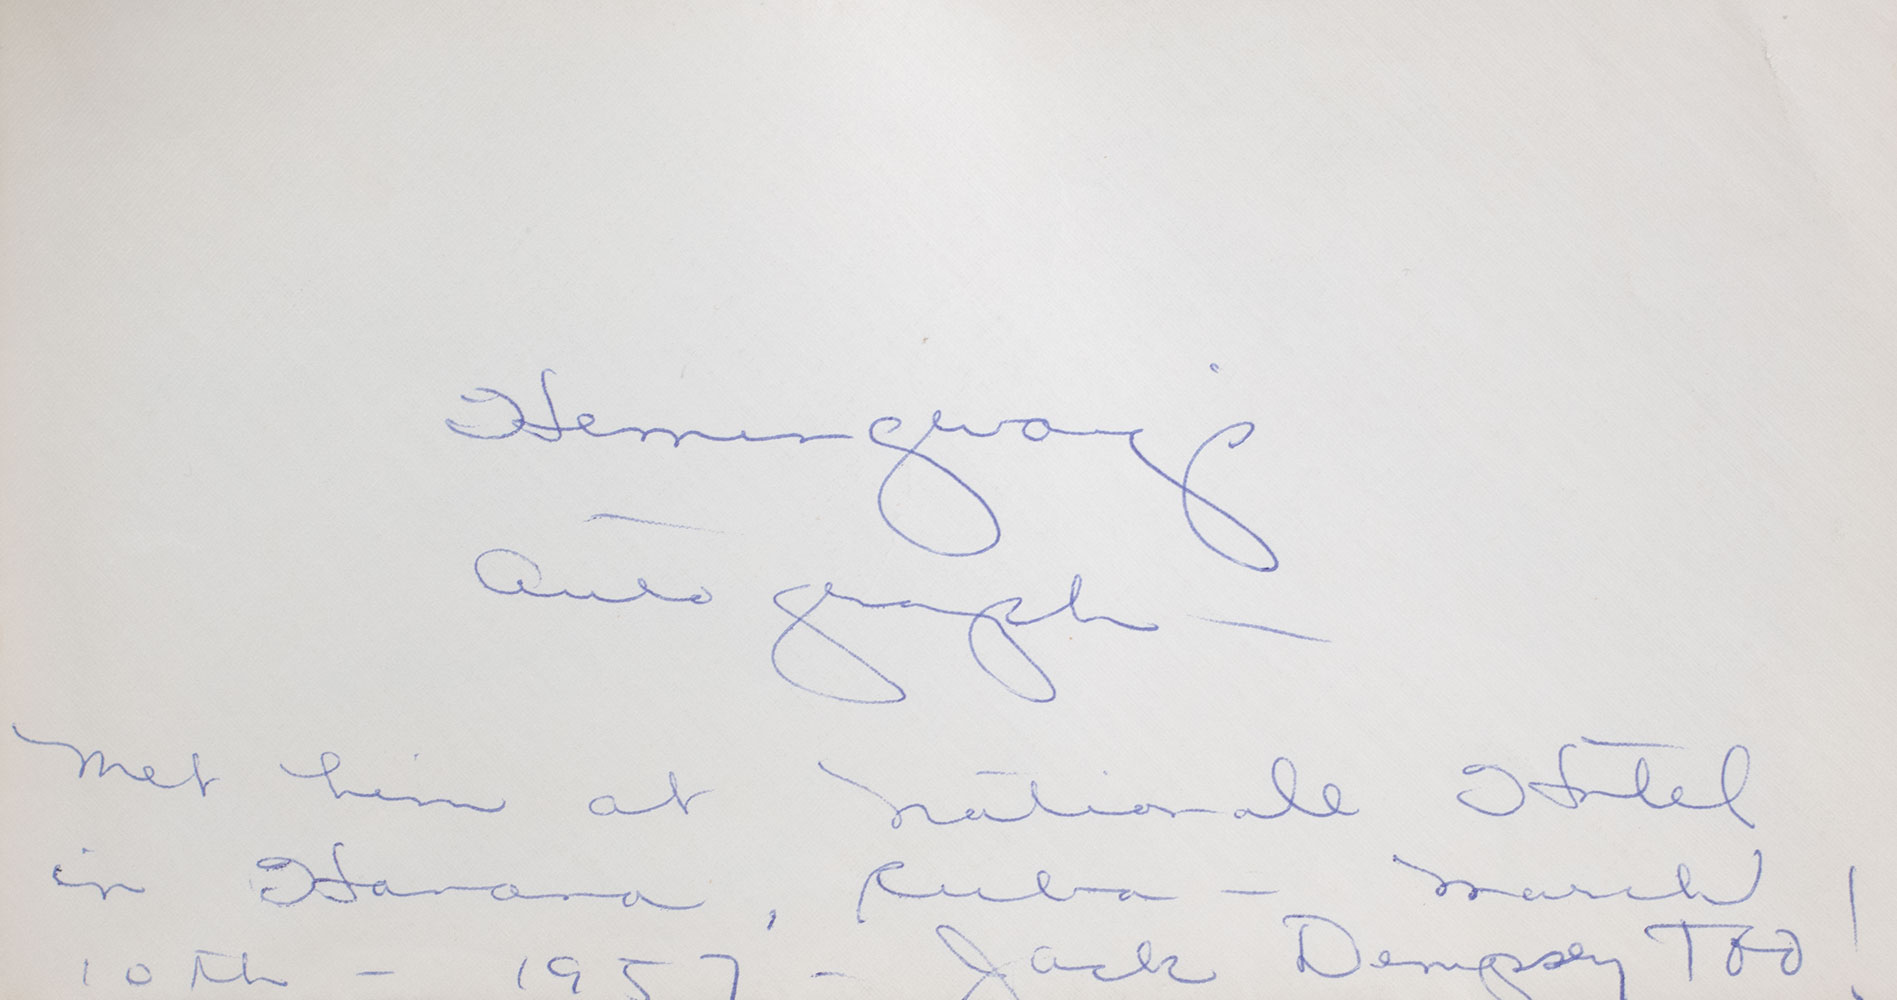 Hemingway's
Autograph —
Met him at Nationale Hotel
in Havana, Cuba — March
10th — 1957 — Jack Dempsey Too!